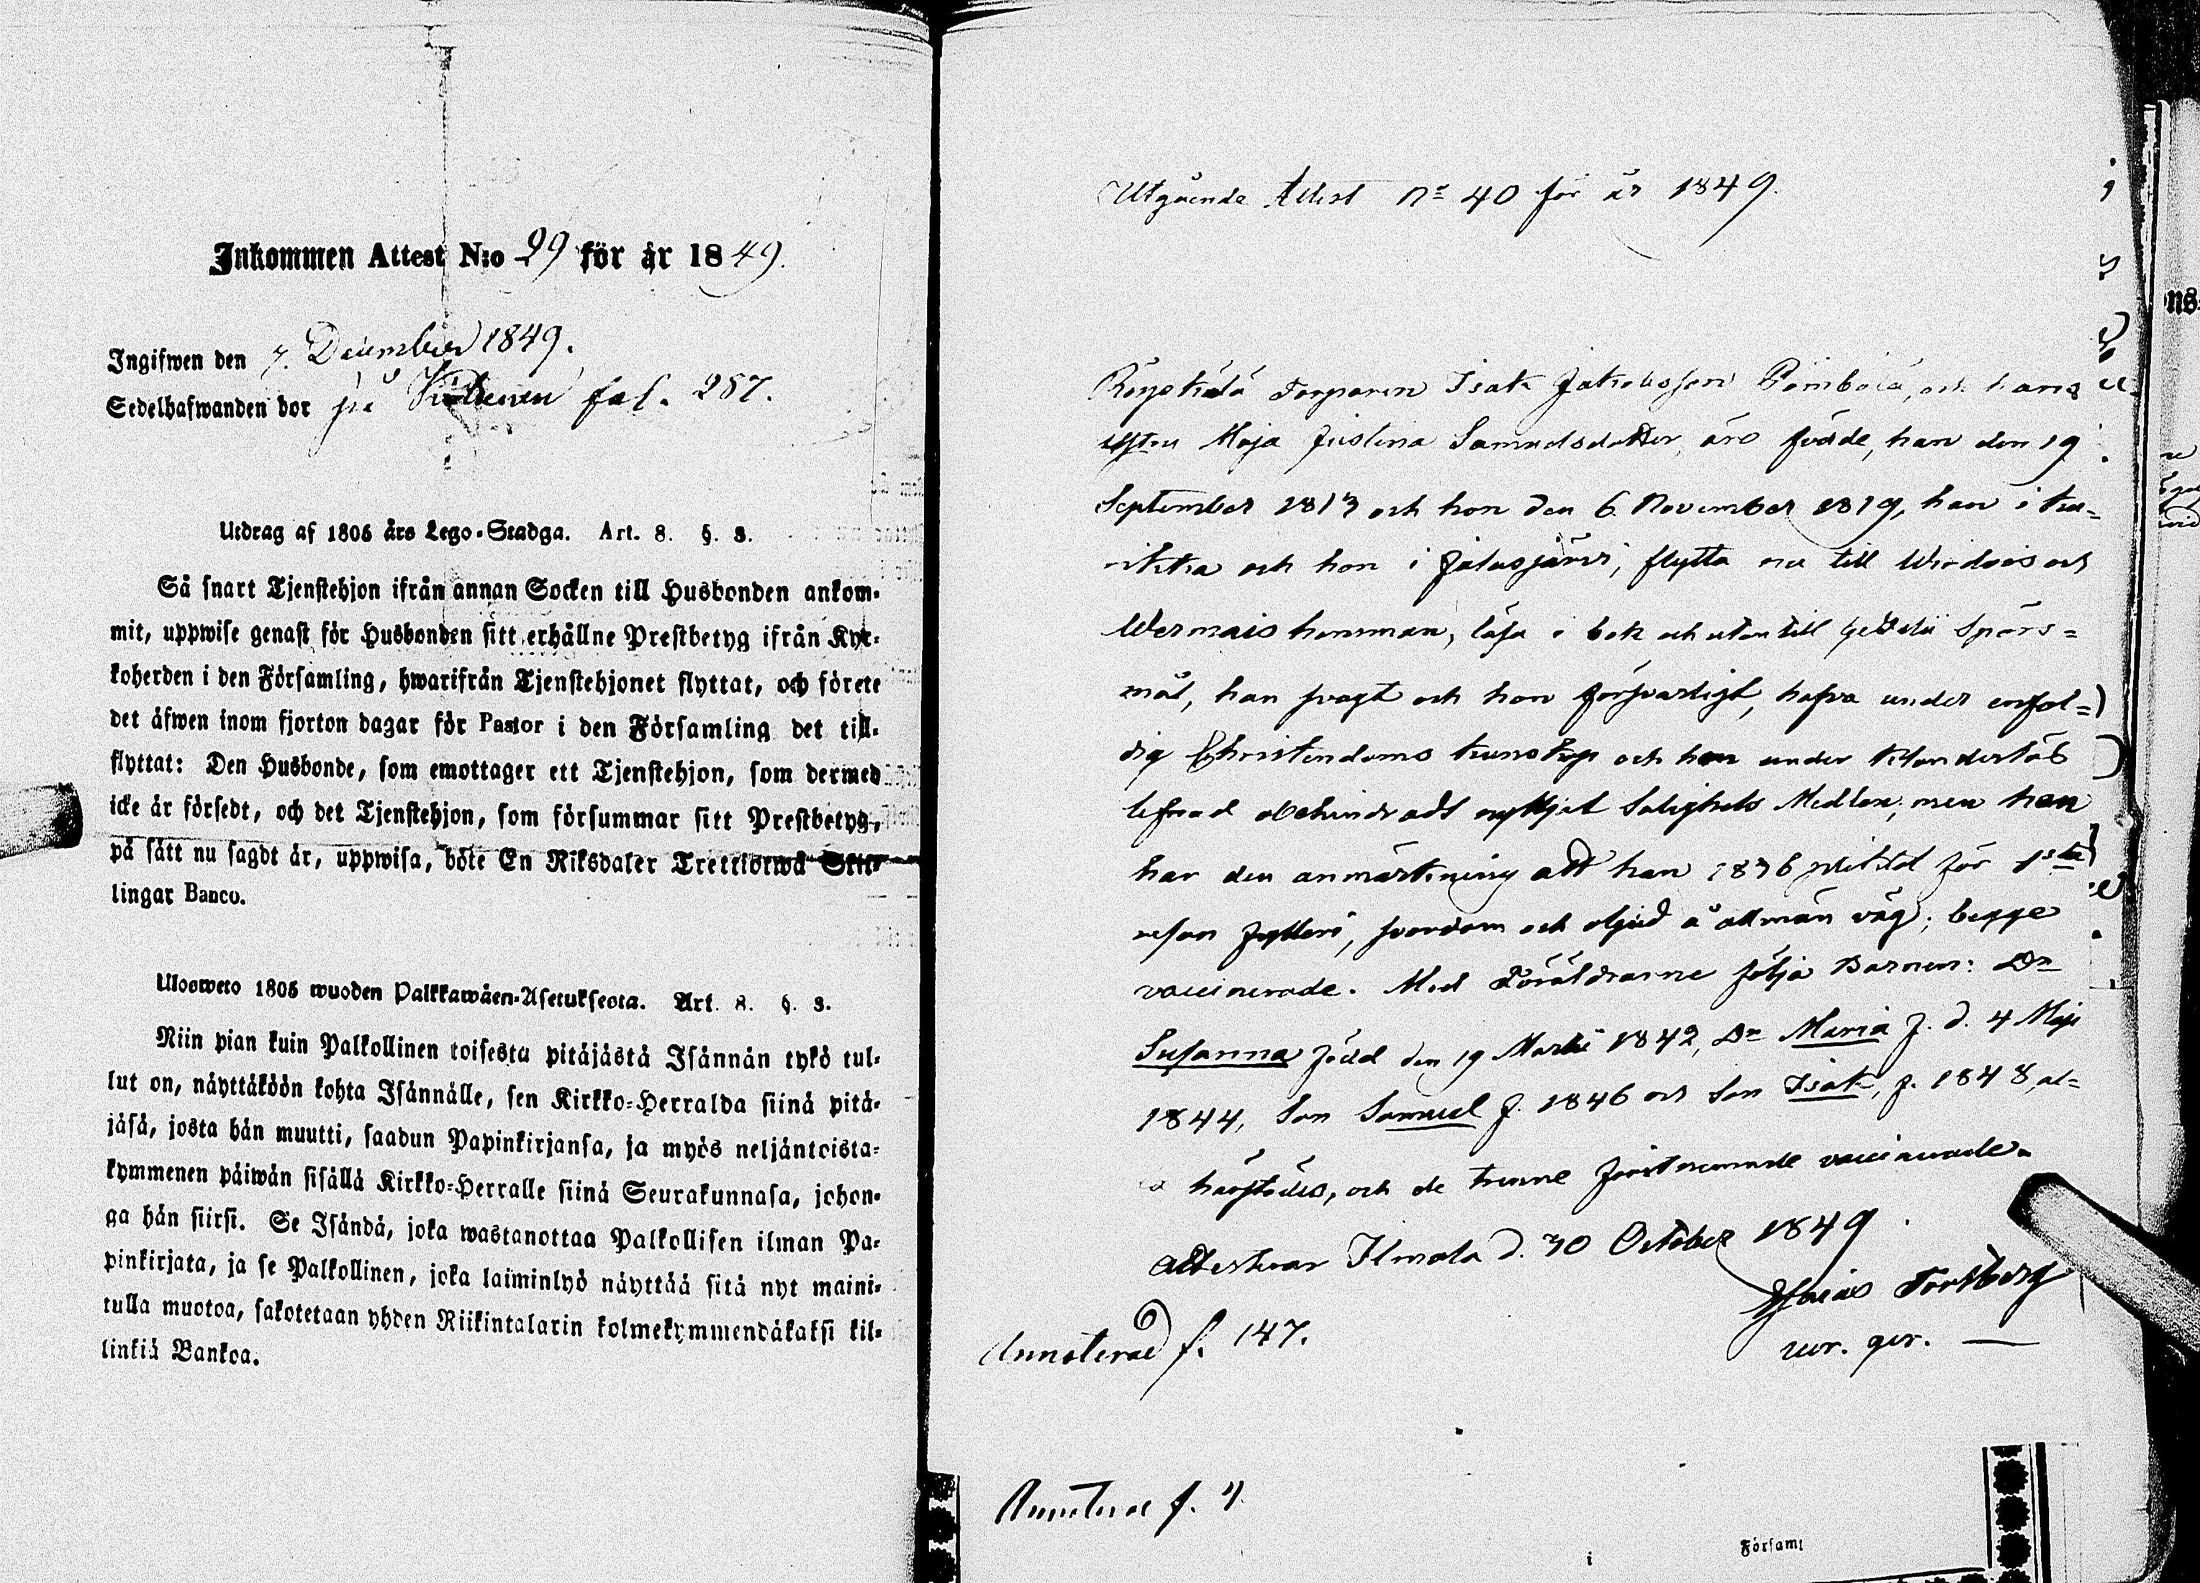 Inkommen Attest N:o 29 för år 1849.
Ingifwen den 7. December 1849.
Sedelhafwanden bor på fol. 287.
Utdrag af 1805 års Lego-Stadga. Art. 8. §. 3.
Så snart Tjenstehjon ifrån annan Socken till Husbonden ankom-
mit, uppwise genast för Husbonden sitt erhållne Prestbetyg ifrån Kyr-
koherden i den Församling, hwarifrån Tjenstehjonet flyttat, och förete
det äfwen inom fjorton dagar för Pastor i den Församling det till-
flyttat: Den Husbonde, som emottager ett Tjenstehjon, som dermed
icke är försedt, och det Tjenstehjon, som försummar sitt Prestbetyg,
på sätt nu sagdt är, uppwisa, böte En Riksdaler Trettiotwå Skil-
lingar Banco.
Ulosweto 1805 wuoden Palkkawäen-Asetuksesta. Art. 8. §. 3.
Niin pian kuin Palkollinen toisesta pitäjästä Isännän tykö tul-
lut on, näyttäköön kohta Isännälle, sen Kirkko-Herralda siinä pitä-
jäsä, josta hän muutti, saadun Papinkirjansa, ja myös neljäntoista-
kymmenen päiwän sisällä Kirkko-Herralle siinä Seurakunnasa, johon-
ga hän siirsi. Se Isändä, joka wastanottaa Palkollisen ilman Pa-
pinkirjata, ja se Palkollinen, joka laiminlyö näyttää sitä nyt maini-
tulla muotoa, sakotetaan yhden Riikintalarin kolmekymmendäkaksi kil-
linkiä Bankoa.
Utgående Attest No 40 för år 1849.
Torparen Isak Jakobsson och hans
hustru Maja Justina Samuelsdotter, äro födde, han den 19
September 1813 och hon den 6 November 1819, han i Kau-
rikka och hon i Jalasjärvi, flytta nu till Wirdois och
hemman, läsa i bok och utan till Spörs-
mål, han svagt och hon försvarligt, hafva under enfal-
dig Christendoms kunskap och hon under klanderlös
lefnad obehindradt nyttjat Salighets Medlen; men han
har den anmärkning att han 1836 pliktat för 1sta
resan fylleri, svordom och oljud å allmän väg; begge
vaccinerade. Med Föräldrarne följa Barnen: Dr
Susanna född den 19 Martii 1842, Dr Maria f. d. 4 Maji
1844, Son Samuel f. 1846 och Son Isak, f. 1848, al-
la härstädes, och de trenne förstnämnde vaccinerade.
Attesterar Ilmola d. 30 October 1849
Esaias Forsberg
Annoterad f. 147.
Annoterad f.
i
Församl